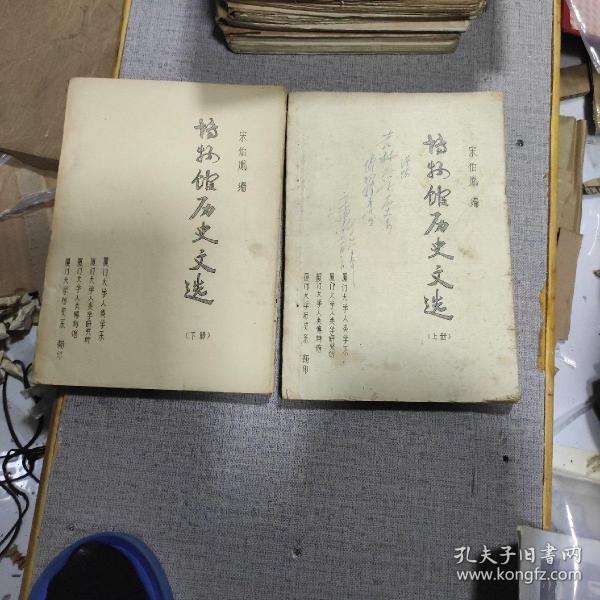 博物馆历史文选
宋伯胤 编
(下册)
厦门大学人类学系
厦门大学人类学研究所
厦门大学人类博物馆
厦门大学历史系 翻印
博物馆历史文选
宋伯胤 编
(上册)
厦门大学人类学系
厦门大学人类学研究所
厦门大学人类博物馆
厦门大学历史系 翻印
孔夫子旧书网
www.kongfz.com